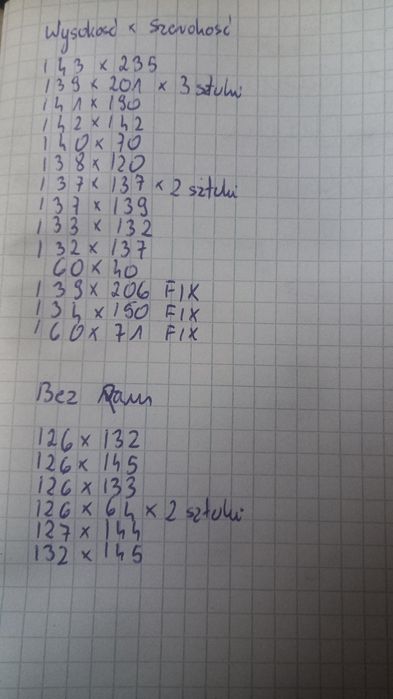 Wysokość x Szerokość
143 x 235
139 x 201 x 3 sztuki
141 x 190
142 x 142
140 x 70
138 x 120
137 x 137 x 2 sztuki
137 x 139
133 x 132
132 x 137
60 x 40
139 x 206 FIX
134 x 150 FIX
160 x 71 FIX
Bez Ram
126 x 132
126 x 145
126 x 133
126 x 64 x 2 sztuki
127 x 144
132 x 145